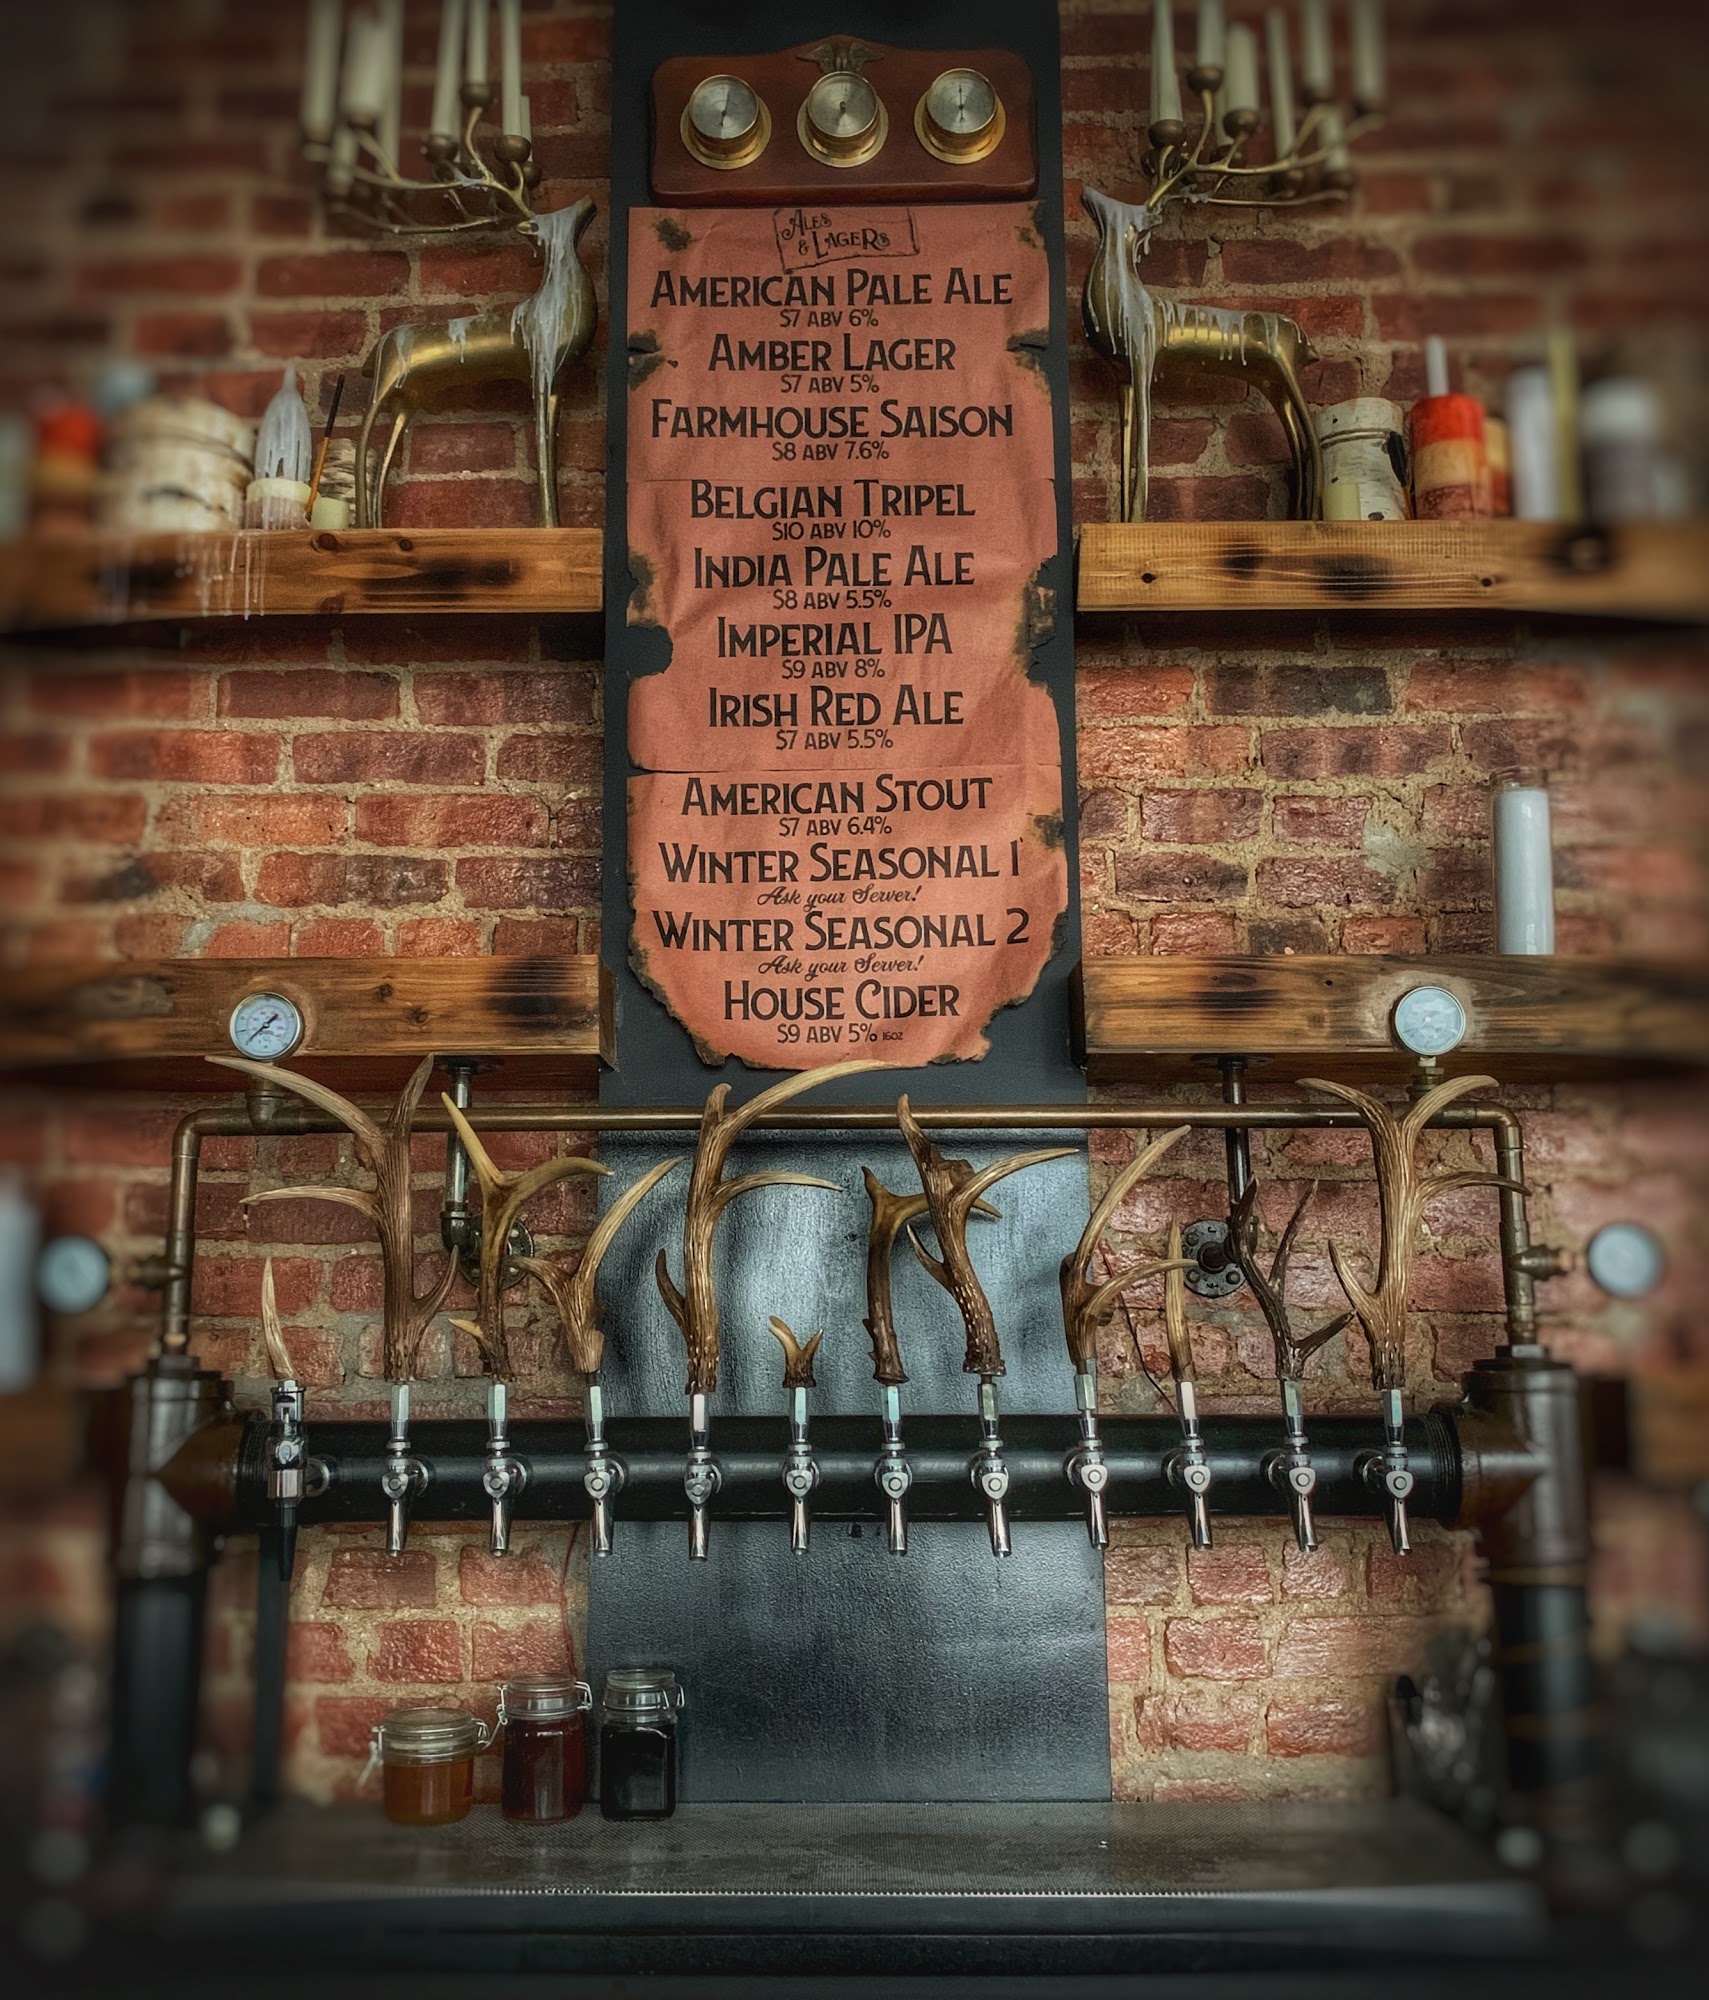 Ales
& Lagers
American Pale Ale
$7 ABV 6%
Amber Lager
$7 ABV 5%
Farmhouse Saison
$8 ABV 7.6%
Belgian Tripel
$10 ABV 10%
India Pale Ale
$8 ABV 5.5%
Imperial IPA
$9 ABV 8%
Irish Red Ale
$7 ABV 5.5%
American Stout
$7 ABV 6.4%
Winter Seasonal 1
Ask your Server!
Winter Seasonal 2
Ask your Server!
House Cider
$9 ABV 5% 16oz